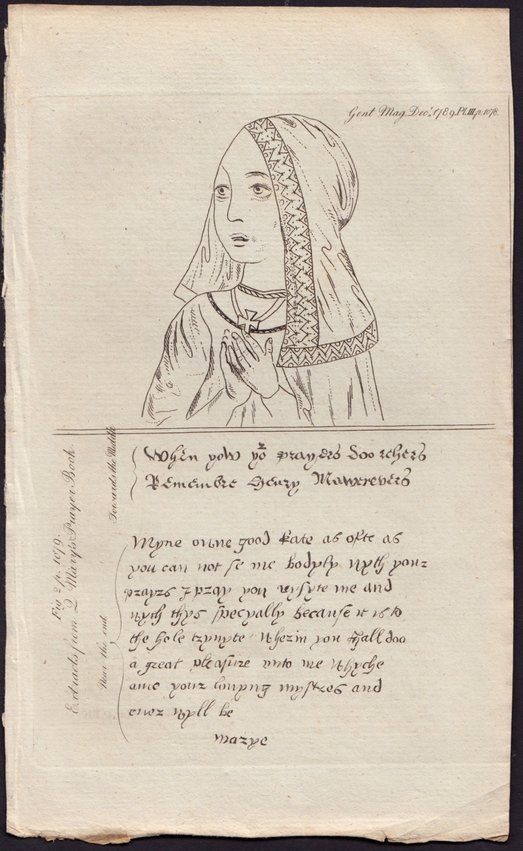 Gent Mag Decr. 1789. Pl. III. p. 1078.
Fig 2. p. 1079.
Extracts from Q. Mary's Prayer Book.
Towards the Middle
When yow yor prayers doo rehers
Remembre Henry Mawerevers
Near the end
Myne owne good Kate as ofte as
you can not se me bodyly wyth your
prayrs I pray you vysyte me and
wyth thys specyally because it is to
the hole trynyte wherin you shall doo
a great pleasure unto me whyche
ame your lovyng mystres and
ever wyll be
Marye